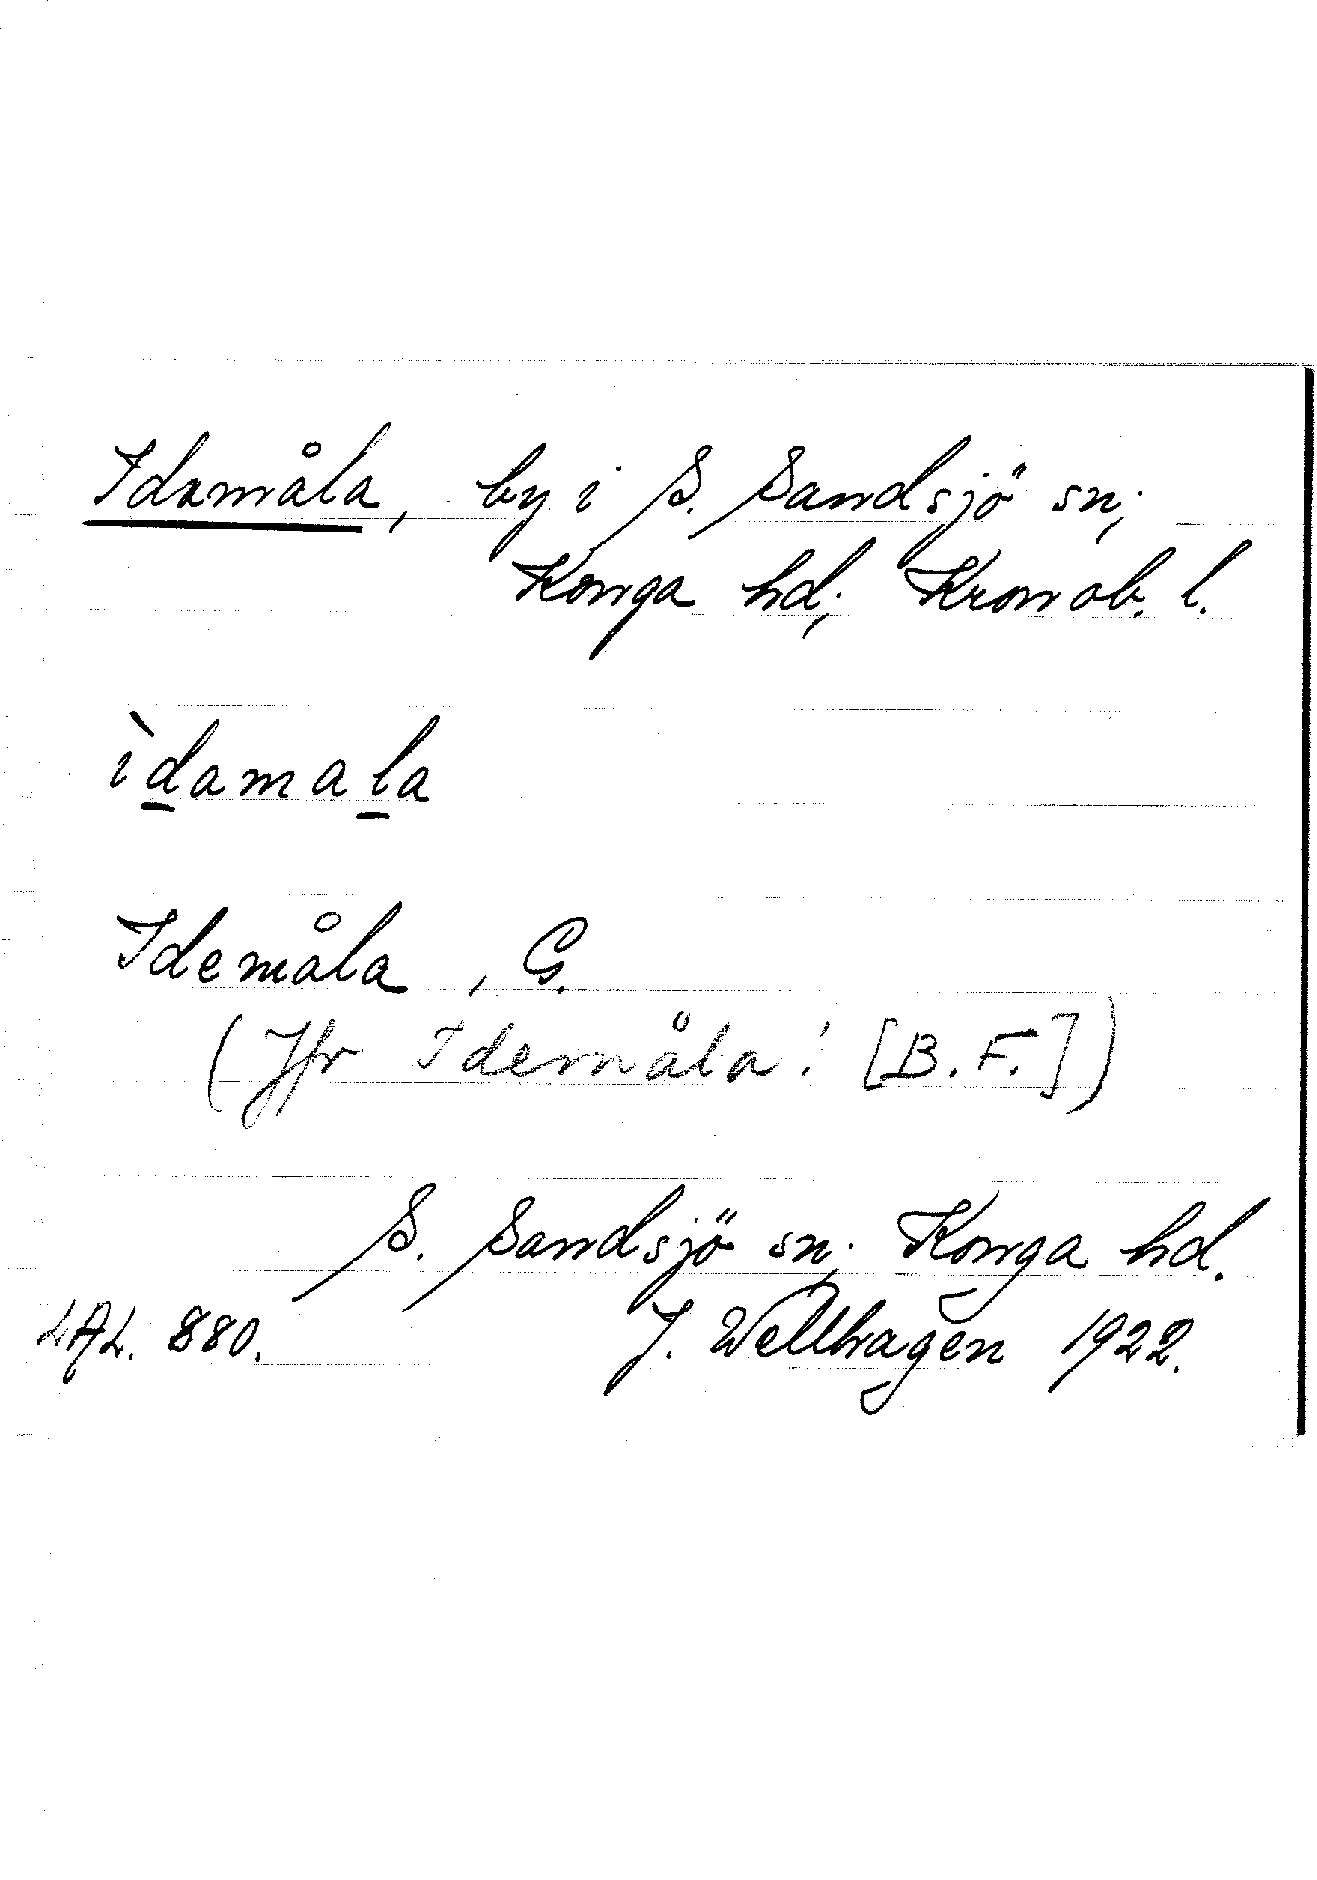 Idamåla, by i S. Sandsjö sn,
Konga hd, Kronob. l.
ìdamala
Idemåla, G.
(Jfr Idemåla! [B.F.])
S. Sandsjö sn, Konga hd.
LAL. 880. J. Wellhagen 1922.